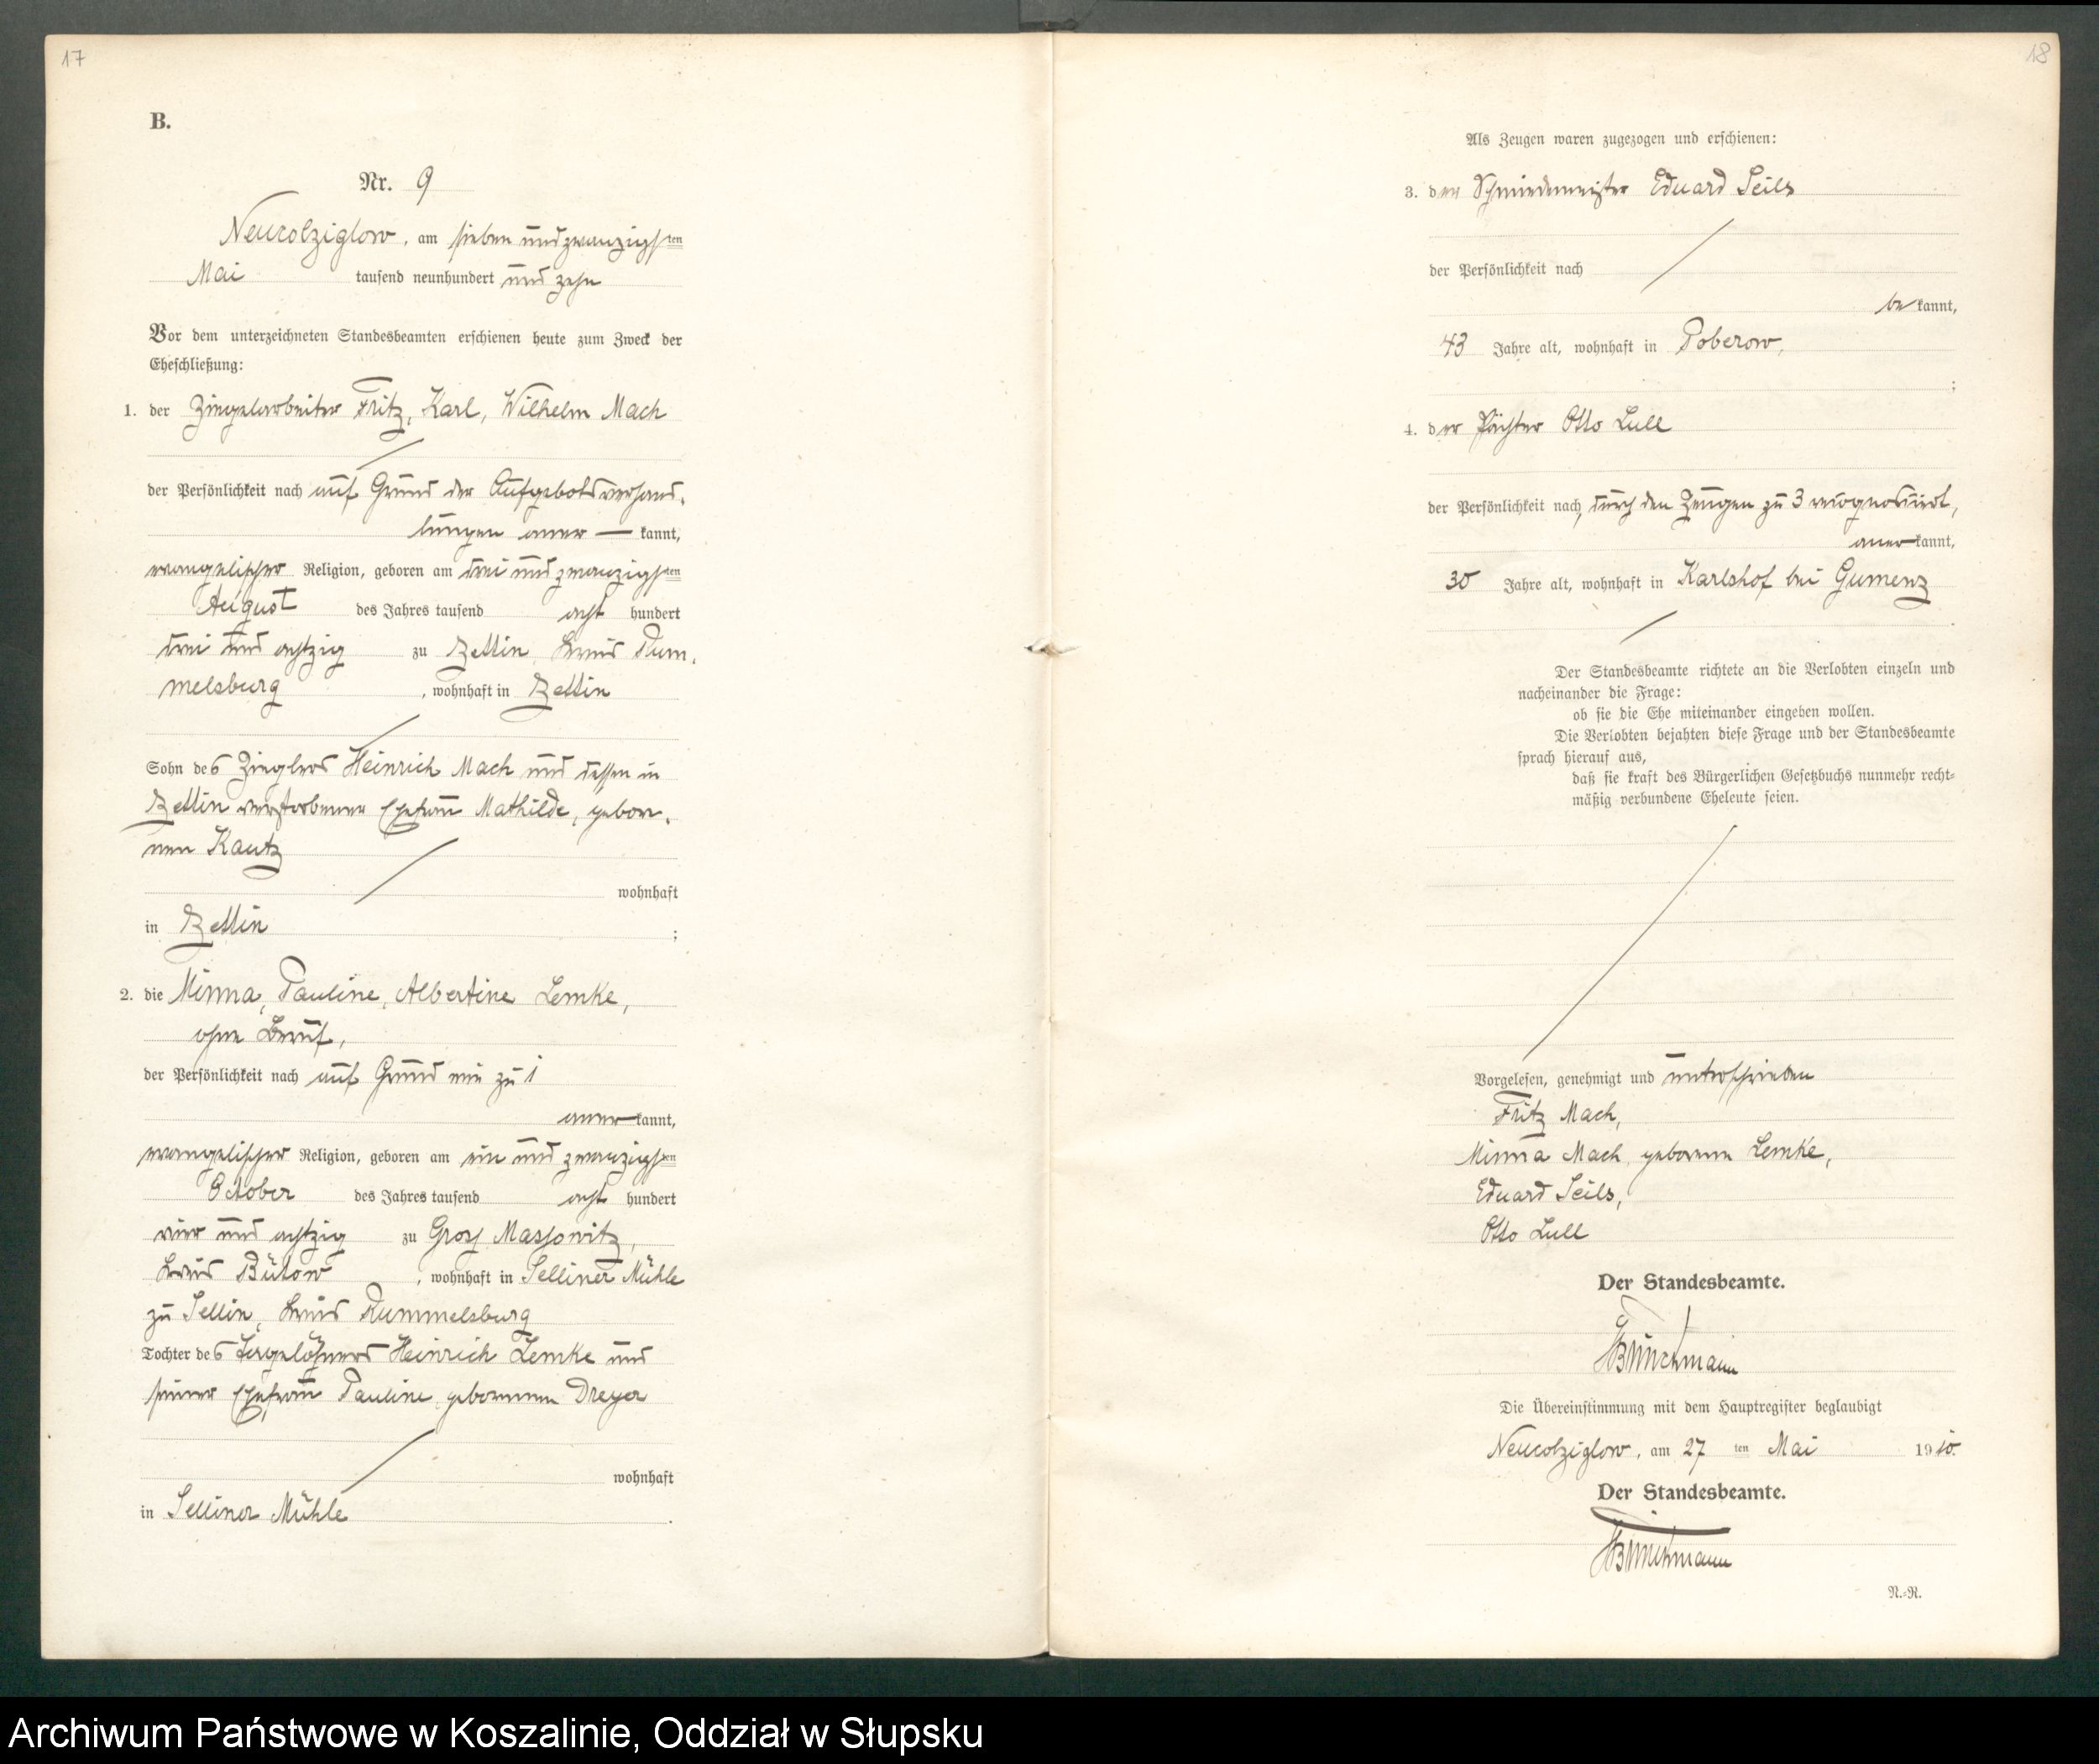 17
B.
Nr. 9
Neukolziglow, am sieben und zwanzigsten
Mai tausend neunhundert und zehn
Vor dem unterzeichneten Standesbeamten erschienen heute zum Zweck der
Eheschließung:
1. der Ziegelarbeiter Fritz, Karl, Wilhelm Mach
der Persönlichkeit nach auf Grund der Aufgebotsverhand-
lungen aner — kannt,
evangelischer Religion, geboren am drei und zwanzigsten
August des Jahres tausend acht hundert
drei und achtzig zu Zettin, Kreis Rum-
melsburg, wohnhaft in Zettin
Sohn des Zieglers Heinrich Mach und dessen in
Zettin verstorbener Ehefrau Mathilde, gebore-
nen Kautz
wohnhaft
in Zettin ;
2. die Minna, Pauline, Albertine Lemke,
ohne Beruf,
der Persönlichkeit nach auf Grund wie zu 1
aner—kannt,
evangelischer Religion, geboren am ein und zwanzigsten
October des Jahres tausend acht hundert
vier und achtzig zu Gross Massowitz,
Kreis Bütow, wohnhaft in Selliner Mühle
zu Sellin, Kreis Rummelsburg
Tochter des Tagelöhners Heinrich Lemke und
seiner Ehefrau Pauline geborenen Dreyer
wohnhaft
in Selliner Mühle .
18
Als Zeugen waren zugezogen und erschienen:
3. der Schmiedemeister Eduard Seils
der Persönlichkeit nach
be kannt,
43 Jahre alt, wohnhaft in Poberow,
;
4. der Pächter Otto Lull
der Persönlichkeit nach, durch den Zeugen zu 3 recognoscirt,
aner—kannt,
30 Jahre alt, wohnhaft in Karlshof bei Gumenz
.
Der Standesbeamte richtete an die Verlobten einzeln und
nacheinander die Frage:
ob sie die Ehe miteinander eingehen wollen.
Die Verlobten bejahten diese Frage und der Standesbeamte
sprach hierauf aus,
daß sie kraft des Bürgerlichen Gesetzbuchs nunmehr recht-
mäßig verbundene Eheleute seien.
Vorgelesen, genehmigt und unterschrieben
Fritz Mach,
Minna Mach, geborene Lemke,
Eduard Seils,
Otto Lull
Der Standesbeamte.
Die Übereinstimmung mit dem Hauptregister beglaubigt
Neukolziglow, am 27 ten Mai 1910.
Der Standesbeamte.
N.-R.
Archiwum Państwowe w Koszalinie, Oddział w Słupsku